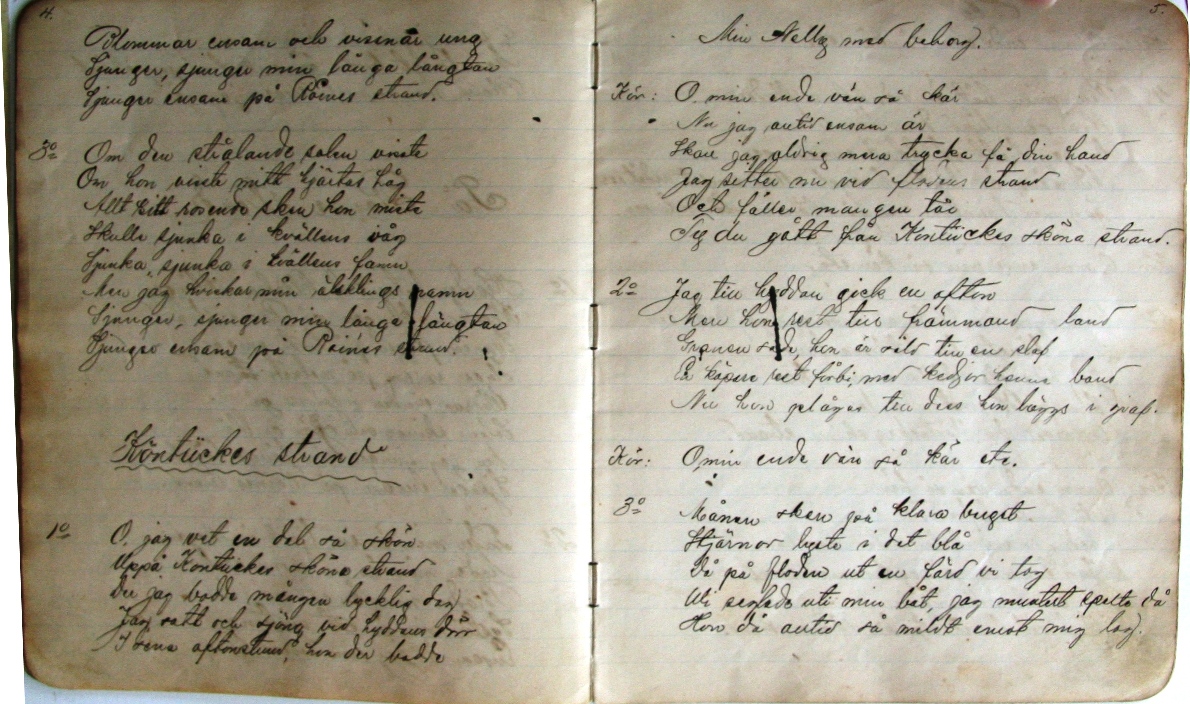 4.
Blommar ensam och vissnar ung
Sjunger, sjunger min långa långtan
Sjunger ensam på Roines strand.
3º Om den strålande solen visste
Om hon visste mitt hjärtas håg
Allt sitt rosende sken hon miste
Skulle sjunka i kvällens våg
Sjunka, sjunka i kvällens famn
Men jag hviskar min älsklings namn
Sjunger, sjunger min långa långtan
Sjunger ensam på Roines strand.
Köntückes strand
1º O, jag vet en dal så skön
Uppå Köntückes sköna strand
Der jag bodde mången lycklig dag
Jag satt och sjöng vid hyddans dörr
I sena aftonstund, hon der bodde
5.
Min Nelly med behag.
Kör: O, min enda vän så kär
Nu jag altid ensam är
Skall jag aldrig mera trycka få din hand
Jag sitter nu vid flodens strand
Och fäller mången tår
Ty du gått från Köntückes sköna strand.
2º Jag till hyddan gick en afton
Men hon rest till främmand land
Grannen sade hon är såld till en slaf
En köpare rest förbi med kedjor henne band
Nu hon plågas till dess hon läggs i graf.
Kör: O, min enda vän så kär etc.
3º Månen sken på klara huget
Stjärnor lyste i det blå
Då på floden ut en färd vi tog
Vi seglade uti min båt, jag muntert spelte då
Hon då altid så mildt emot mig log.